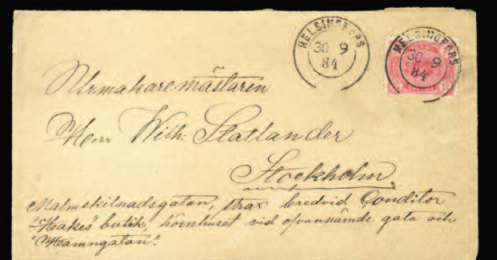 HELSINGFORS
30 9
84
HELSINGFORS
30 9
84
Urmakaremästaren
Herr Wilh. Statlander
Stockholm
Malmskilnadsgatan, strax bredvid Conditor
butik, hörnhuset vid ofvannämde gata och
"Hamngatan".